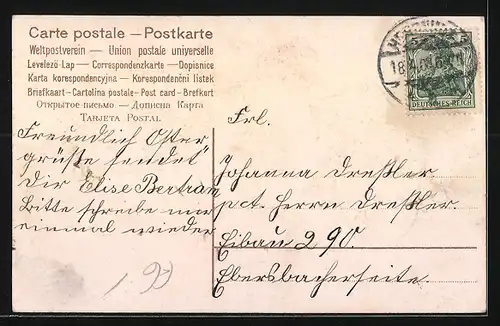 Carte postale — Postkarte
Weltpostverein — Union postale universelle
Levelező-Lap — Correspondenzkarte — Dopisnice
Karta korespondencyjna — Korespondenční listek
Briefkaart — Cartolina postale — Post card — Brefkort
Открытое письмо — Дописна Карта
Tarjeta Postal
DEUTSCHES REICH
Freundlich Oster
grüße sendet
Dir Elise Bertram
Bitte schreibe mir
einmal wieder
Frl.
Johanna Dreßler
p. ct. Herrn Dreßler.
Eibau 290.
Ebersbacherseite.